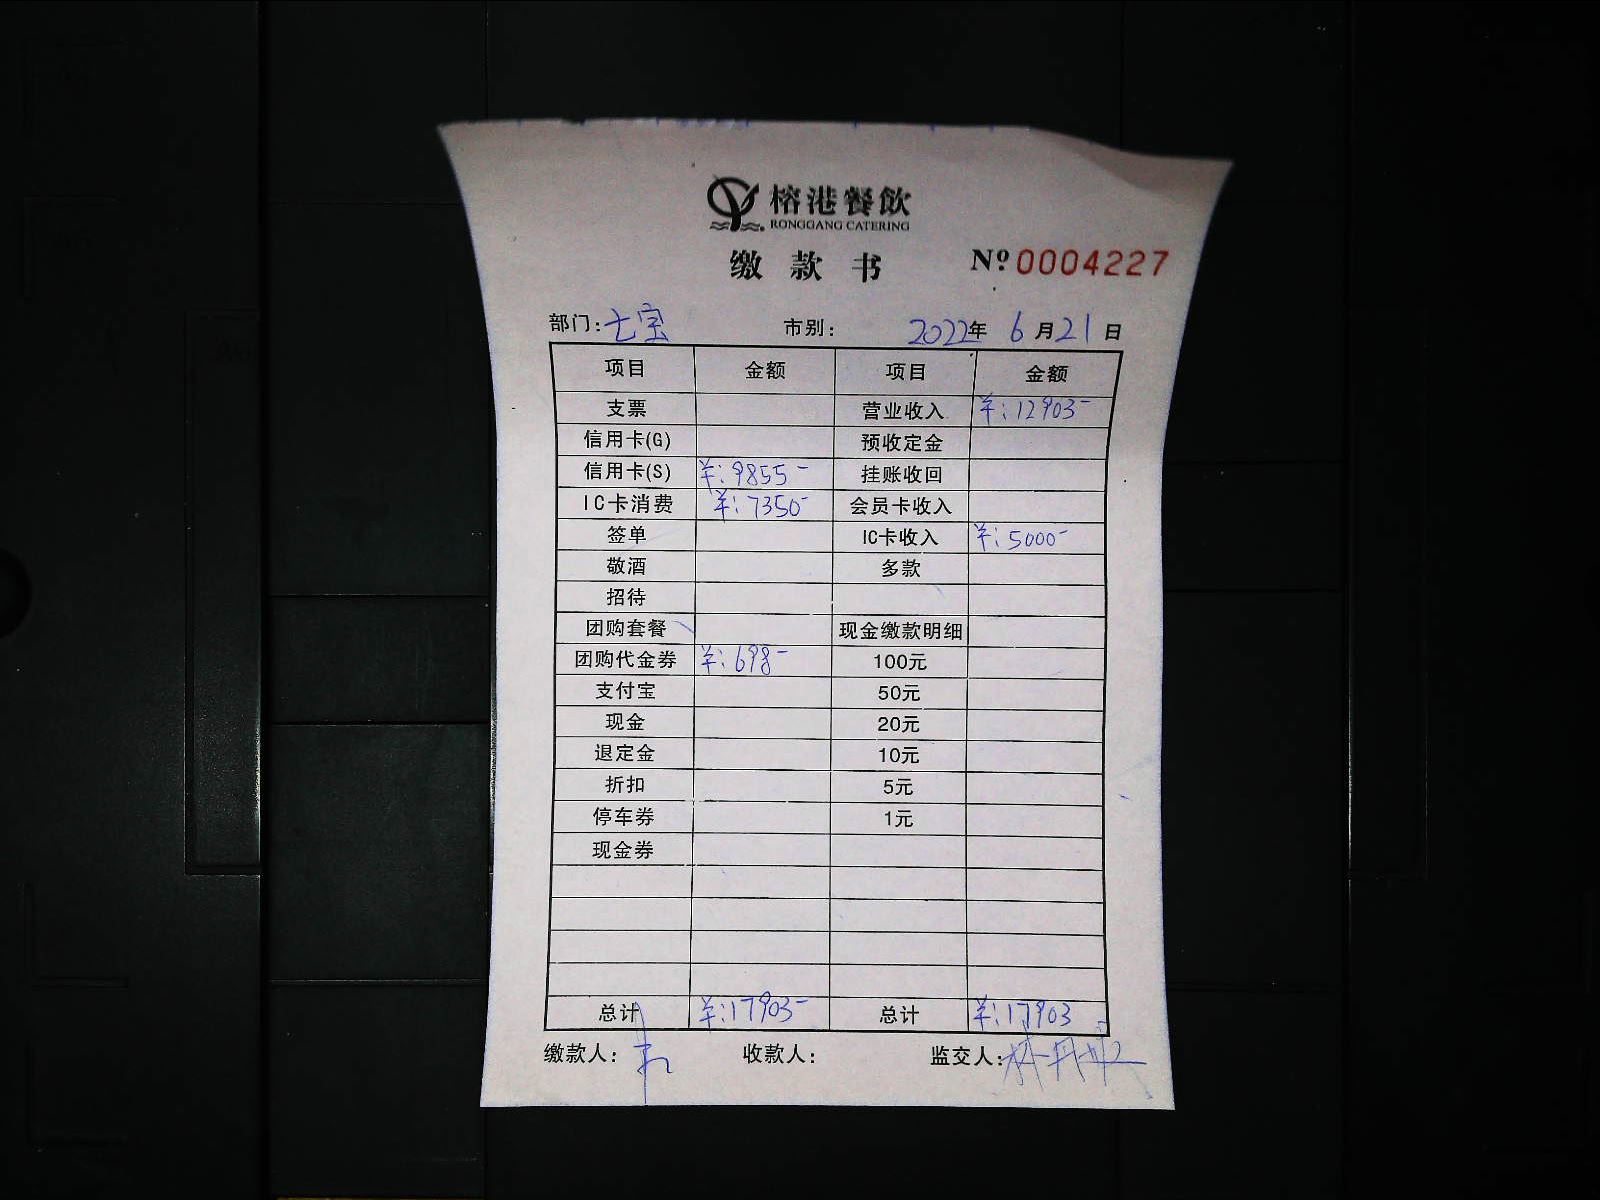 榕港餐飲
RONGGANG CATERING
缴款书 Nº 0004227
部门: 七宝 市别: 2022年 6月21日
项目 金额 项目 金额
支票 营业收入 ¥:12903-
信用卡(G) 预收定金
信用卡(S) ¥:9855- 挂账收回
IC卡消费 ¥:7350- 会员卡收入
签单 IC卡收入 ¥:5000-
敬酒 多款
招待
团购套餐 现金缴款明细
团购代金券 ¥:698- 100元
支付宝 50元
现金 20元
退定金 10元
折扣 5元
停车券 1元
现金券
总计 ¥:17903- 总计 ¥:17903
缴款人: 收款人: 监交人: